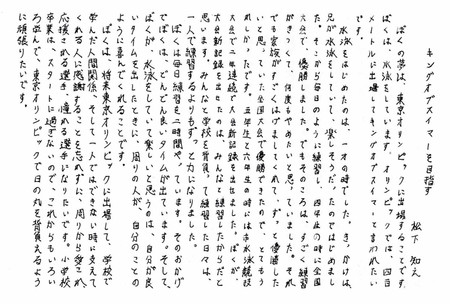 キングオブスイマーを目指す
松下 知之
ぼくの夢は、東京オリンピックに出場することです。
ぼくは、水泳をしています。オリンピックでは、四百
メートルに出場しキングオブスイマーと言われたい
です。
水泳をはじめたのは、一才の時でした。きっかけは、
兄が水泳をしていて楽しそうだったのではじめまし
た。そこから毎日のように練習し、四年生の時に全国
大会で優勝しました。でもそのころは、すごく練習
がきつくて、何度もやめたいと思っていました。それ
でも家族がいつもはげましてくれて、ずっと優勝した
いと思っていた全国大会で優勝できたので、とてもう
れしかったです。五年生と六年生の時には水泳競技
大会で二年連続で大会新記録を出せました。ぼくが、
大会新記録を出せたのは、みんなと練習したからだと
思います。みんなと学校を背負って練習した日々は、
一人で練習するよりも力になりました。
ぼくは毎日練習を二時間やっています。そのおかげ
でぼくは、どんどん良いタイムが出ています。そして、
ぼくが、水泳をしていて楽しいと思うのは、自分が良
いタイムを出したときに、周りの人が、自分のことの
ように喜んでくれることです。
ぼくは、将来東京オリンピックに出場して、学校で
学んだ人間関係、そして一人ではできない時に支えて
くれる人に感謝することを忘れずに、周りから愛され
応援される選手、憧れる選手になりたいです。小学校
卒業は、スタートに過ぎないので、これからもいろい
ろ学んで、東京オリンピックで日の丸を背負えるよう
に頑張りたいです。